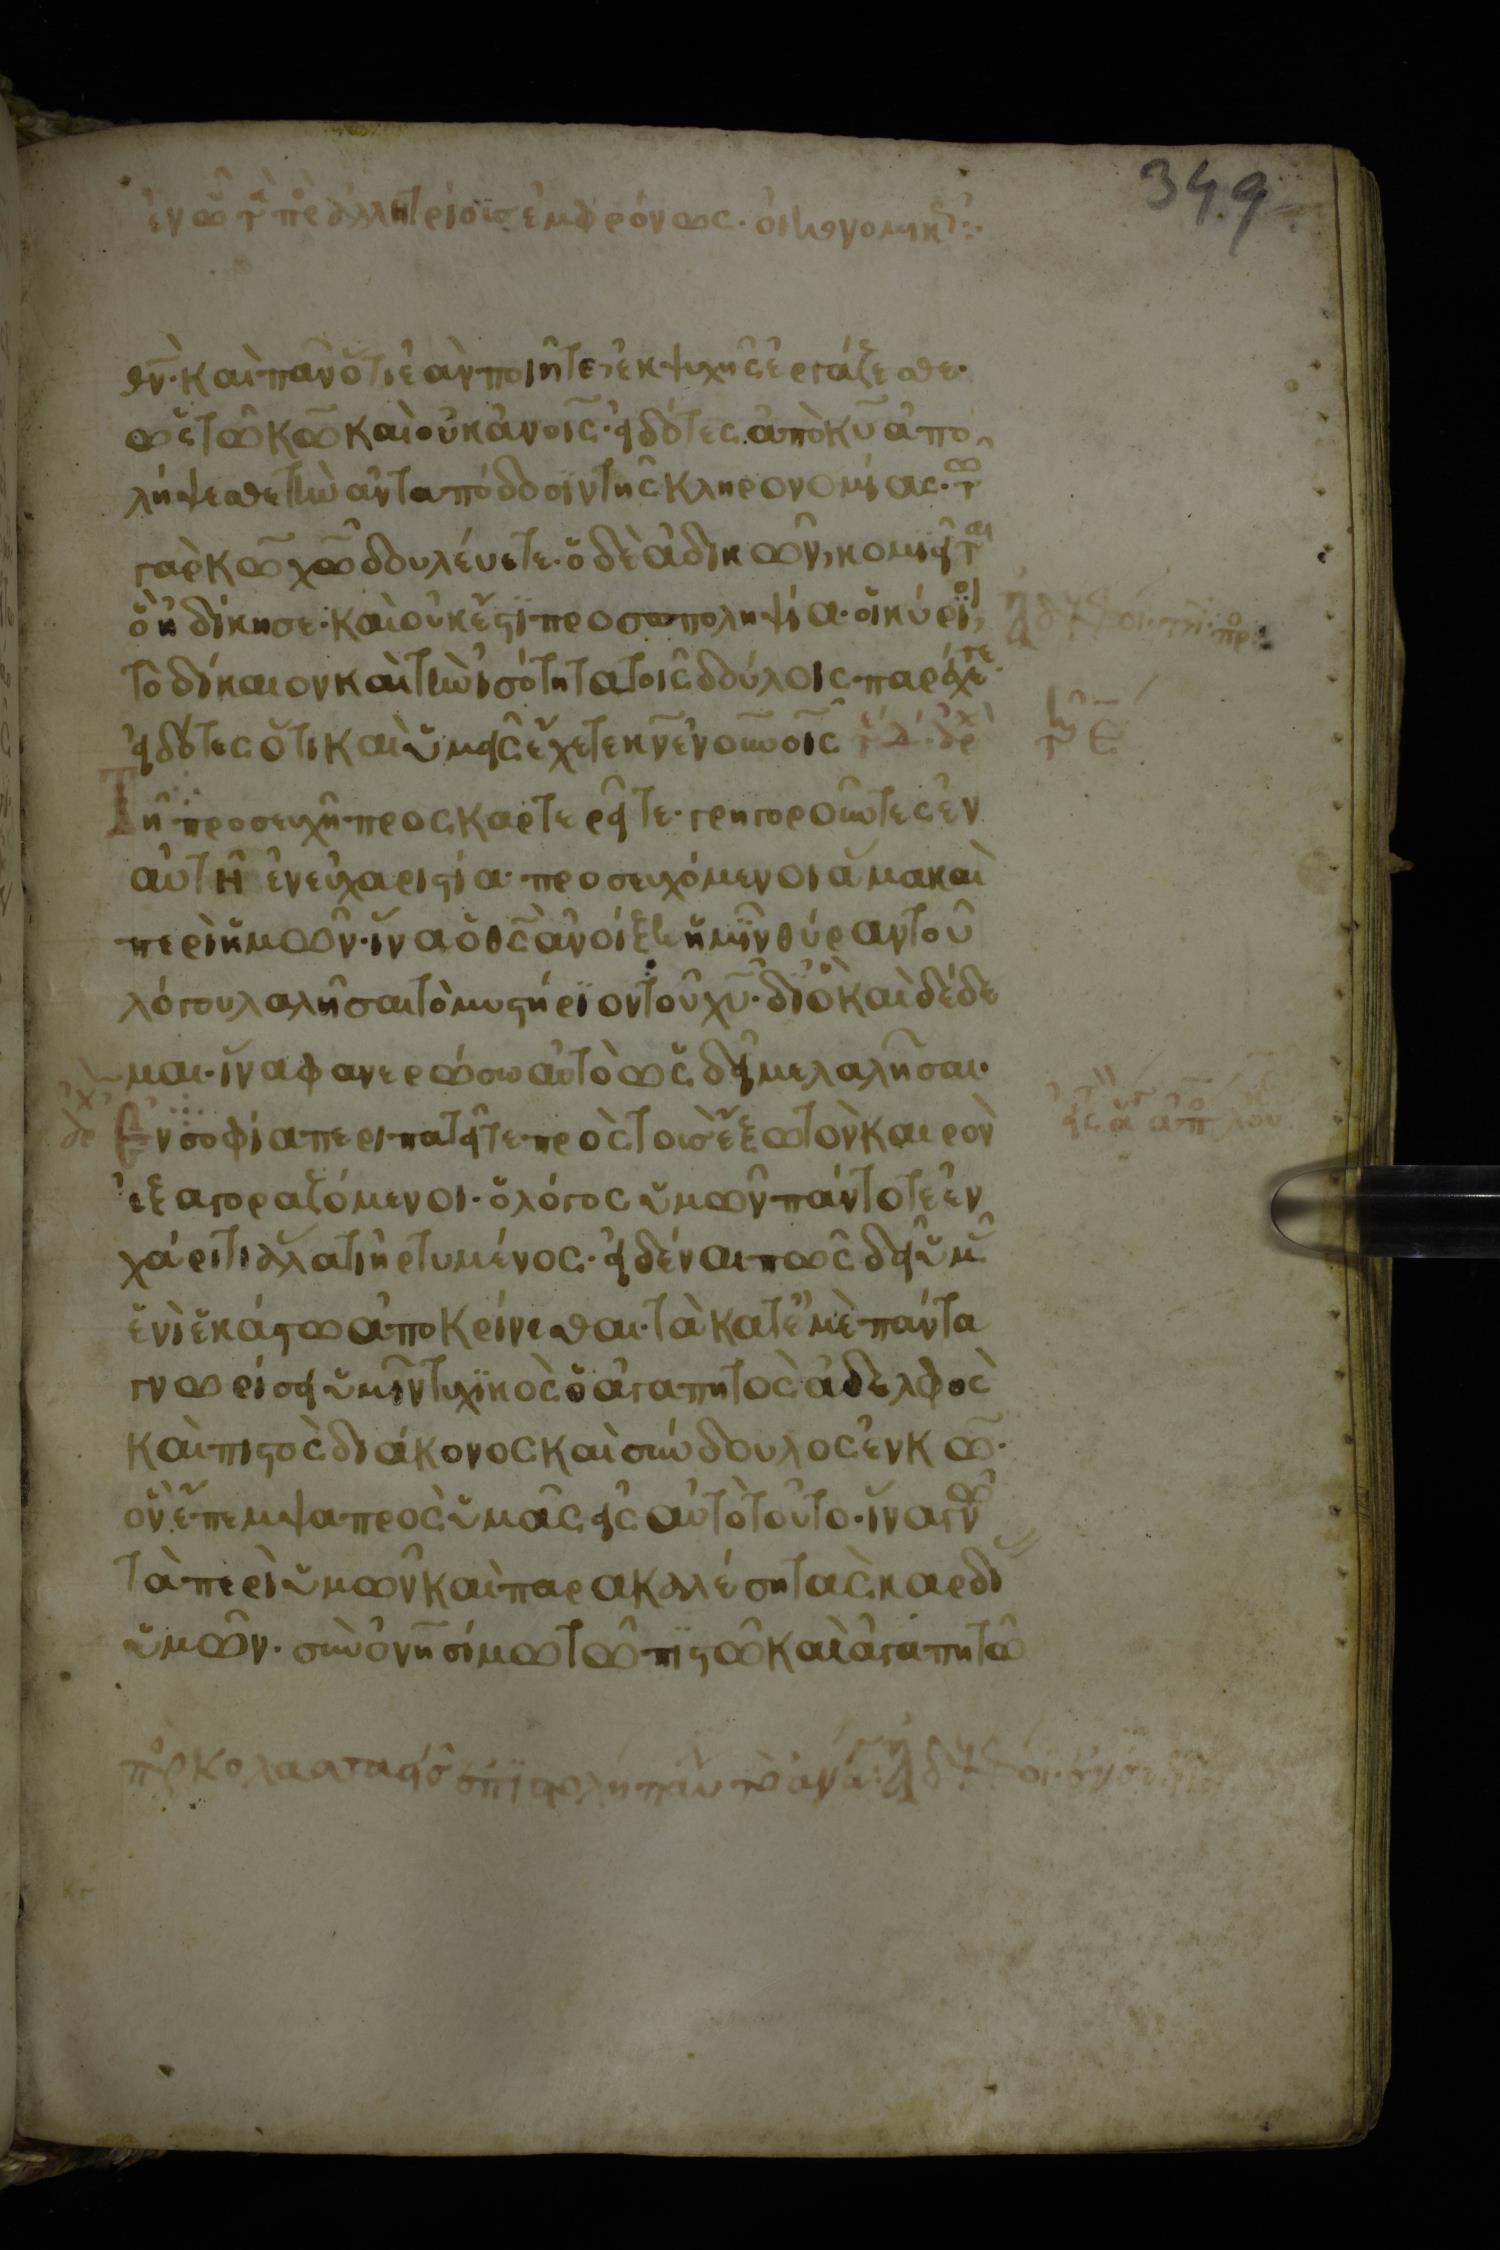 349
θν̄· καὶ πᾶν ὅτι ἐὰν ποιῆτε, ἐκ ψυχῆς ἐργάζεσθε·
ὡς τῶ κω̄ καὶ οὐκ ἀνοις̄· εἰδότες ἀπὸ κῡ ἀπο
λήψεσθε τὴν ἀνταπόδοσϊν τῆς κληρονομίας· τω
γὰρ κω̄ χω̄ δουλέυετε· ὁ δὲ ἀδικῶν, κομιεῖται
ὃ ἠδίκησε· καὶ οὐκ ἔστϊ προσωποληψία· οἱ κύριοι,
τὸ δίκαιον καὶ τὴν ἰσότητα τοῖς δούλοις παρέχετε·
εἰδότες ὅτι καὶ ὑμεῖς ἔχετε κν̄ ἐν οὐνοις̄
Τῆ προσευχῆ προσκαρτερεῖτε· γρηγοροῦντες ἐν
αὐτῆ ἐν εὐχαριστία· προσευχόμενοι ἅμα καὶ
περὶ ἡμῶν· ἵνα ὁ θς̄ ἀνοίξη ἡμῖν θύραν τοῦ
λόγου λαλῆσαι τὸ μυστήριον τοῦ χῡ· δϊ ὃ καὶ δέδε
μαι· ἵνα φανερώσω αὐτὸ ὡς δεῖ με λαλῆσαι·
Ἐν σοφία περιπατεῖτε πρὸς τοὺς ἔξω τὸν καιρὸν
ἐξαγοραζόμενοι· ὁ λόγος ὑμῶν πάντοτε ἐν
χάριτι ἅλατι ἠρτυμένος· εἰδέναι πῶς δεῖ ὑμᾶς
ἑνὶ ἑκάστω ἀποκρίνεσθαι· τὰ κατ' ἐμὲ πάντα
γνωρίσει ὑμῖν τυχϊκὸς ὁ ἀγαπητὸς ἀδελφὸς
καὶ πιστὸς διάκονος καὶ σύνδουλος ἐν κω̄·
ὃν ἔπεμψα πρὸς ὑμᾶς εἰς αὐτὸ τοῦτο· ἵνα γνῶ
τὰ περὶ ὑμῶν καὶ παρακαλέση τὰς καρδίας
ὑμῶν· σὺν ὀνησίμω τῶ πϊστῶ καὶ ἀγαπητῶ